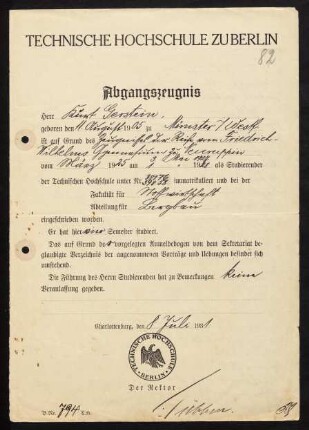 TECHNISCHE HOCHSCHULE ZU BERLIN
82
Abgangszeugnis
Herr Kurt Gerstein,
geboren den 11 August 1905 zu Münster i/Westf.
ist auf Grund des Zeugnisses der Reife vom Friedrich-
Wilhelms Gymnasium zu Neuruppin
vom März 1925 am 2. Mai als Studierender
der Technischen Hochschule unter Nr. immatrikuliert und bei der
Fakultät für Stoffwirtschaft
Abteilung für Bergbau
eingeschrieben worden.
Er hat hier ein Semester studiert.
Das auf Grund des vorgelegten Anmeldebogen von dem Sekretariat be-
glaubigte Verzeichnis der angenommenen Vorträge und Übungen befindet sich
umstehend.
Die Führung des Herrn Studierenden hat zu Bemerkungen keine
Veranlassung gegeben.
Charlottenburg, den 8 Juli 1931
TECHNISCHE HOCHSCHULE
BERLIN
Der Rektor
B.Nr. 794